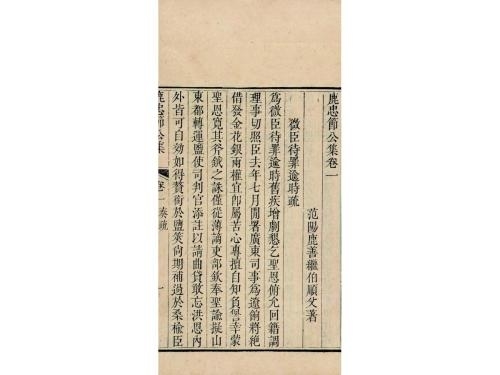 鹿忠節公集卷一
范陽鹿善繼伯順父著
微臣待罪逾時疏
爲微臣待罪逾時舊疾增劇懇乞聖恩俯允回籍調
理事切照臣去年七月閒署廣東司事爲遼餉將絕
借發金花銀兩權宜卽屬苦心專擅自知負辠幸蒙
聖恩寬其斧鉞之誅僅從薄謫吏部欽奉聖諭擬山
東都轉運鹽使司判官添註以請曲貸敢忘洪恩內
外皆可自効如得贊銜於鹽筴尚期補過於桑榆臣
鹿忠節公集
卷一 奏疏
一